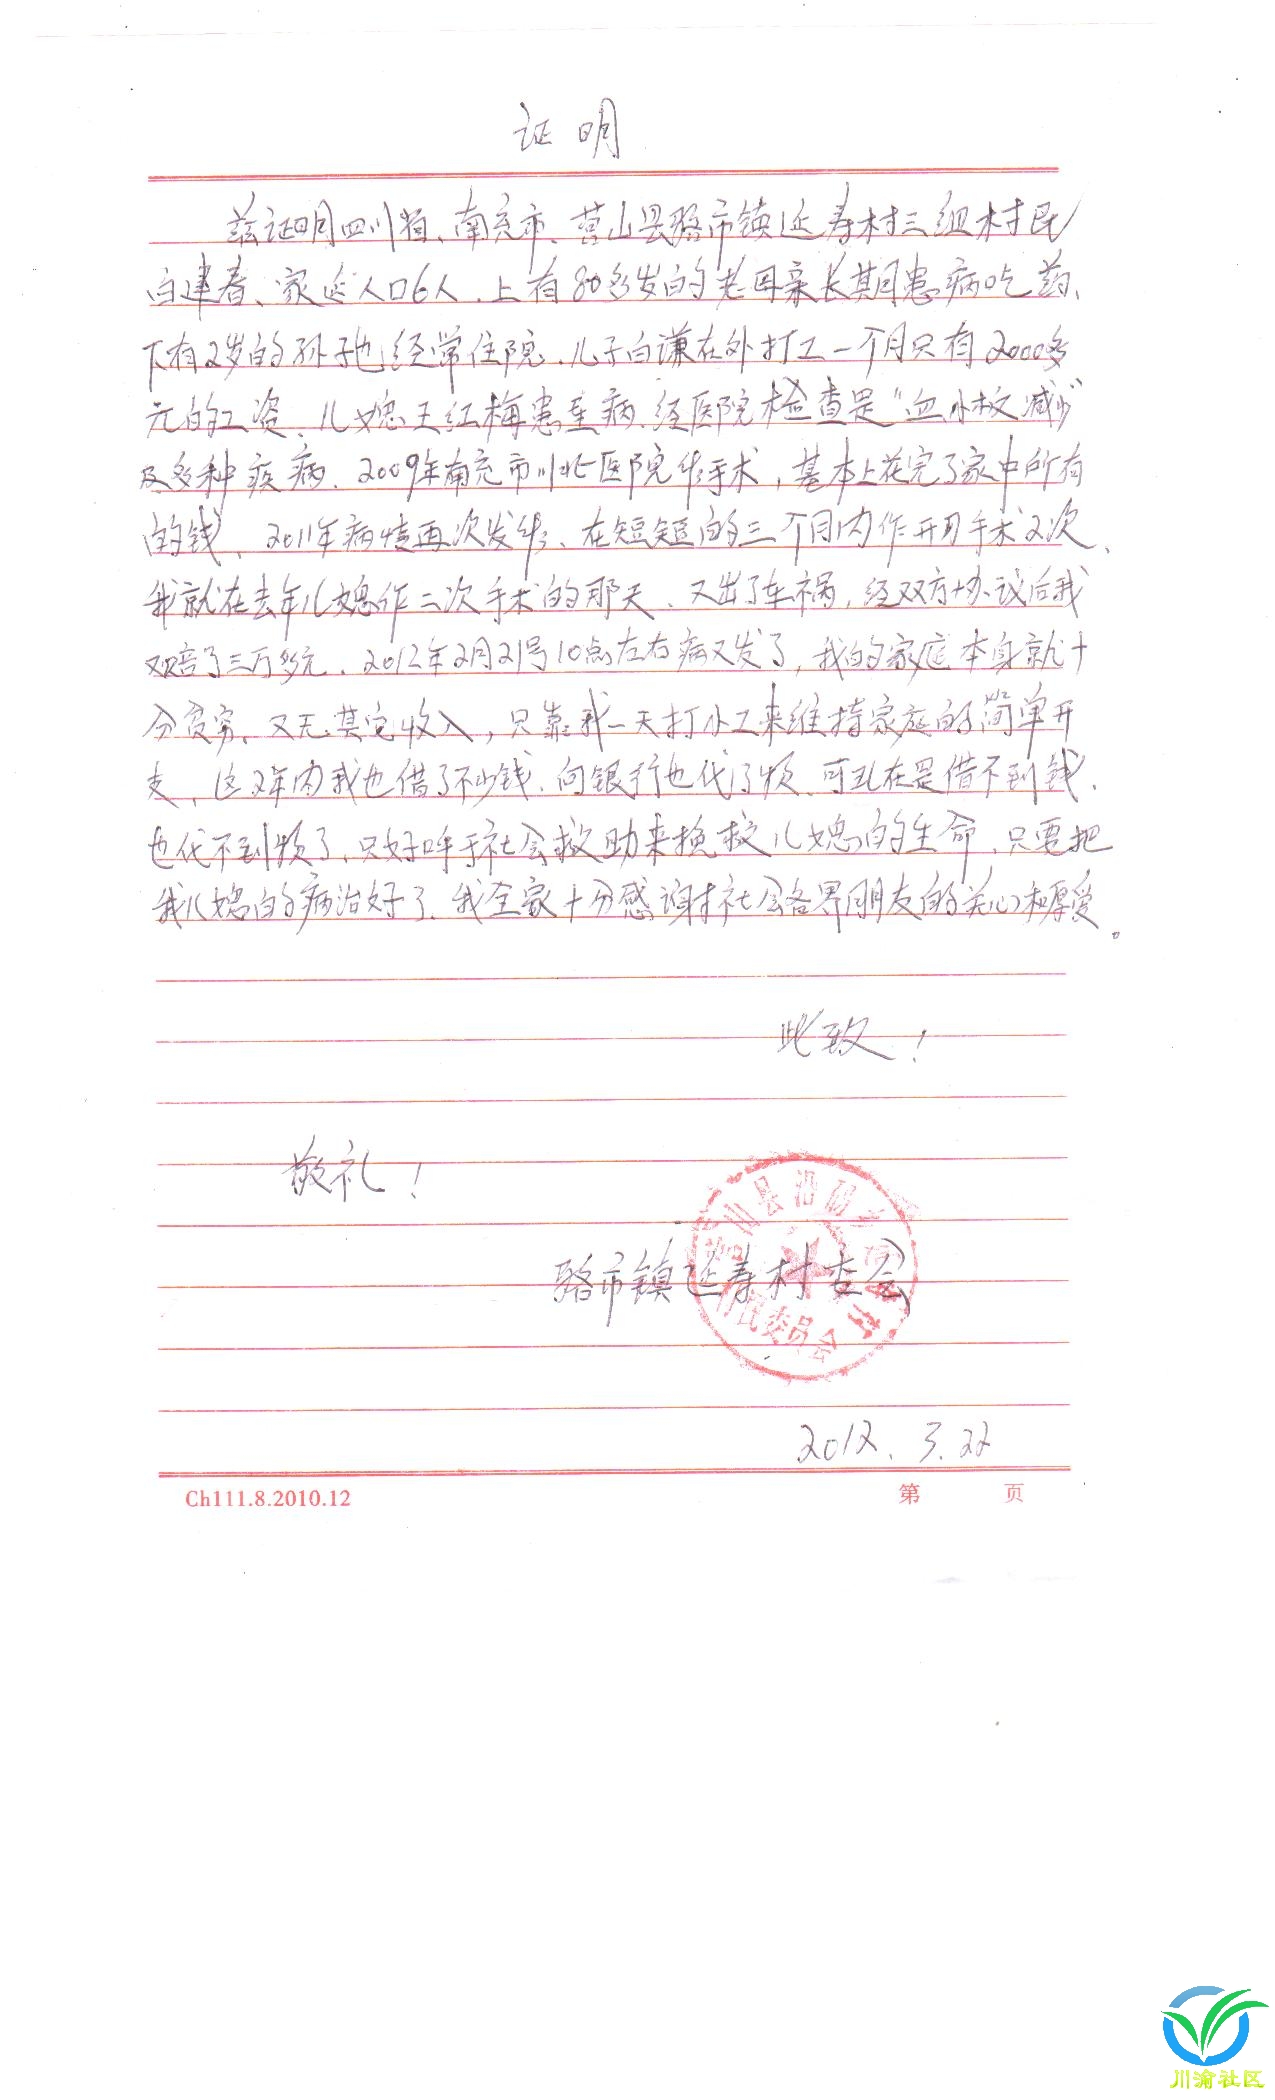 证明
兹证明四川省、南充市、营山县骆市镇延寿村三组村民
白建春、家庭人口6人、上有80多岁的老母亲长期患病吃药、
下有2岁的孙子也经常住院、儿子白谦在外打工一个月只有2000多
元的工资、儿媳王红梅患重病、经医院检查是“血小板减少”
及多种疾病、2009年南充市川北医院作手术，基本上花完了家中所有
的钱、2011年病情再次发作、在短短的三个月内作开刀手术2次、
我就在去年儿媳作二次手术的那天、又出了车祸，经双方协议后我
又赔了三万多元、2012年2月21号10点左右病又发了，我的家庭本身就十
分贫穷、又无其它收入，只靠我一天打小工来维持家庭的简单开
支、这2年内我也借了不少钱、向银行也代了款、可现在是借不到钱、
也代不到款了、只好呼于社会救助来挽救儿媳的生命、只要把
我儿媳的病治好了、我全家十分感谢社会各界朋友的关心和厚爱。
此致！
敬礼！
骆市镇延寿村委会
山县沿
村民委员会
2012.3.22
Ch111.8.2010.12 第 页
川渝社区